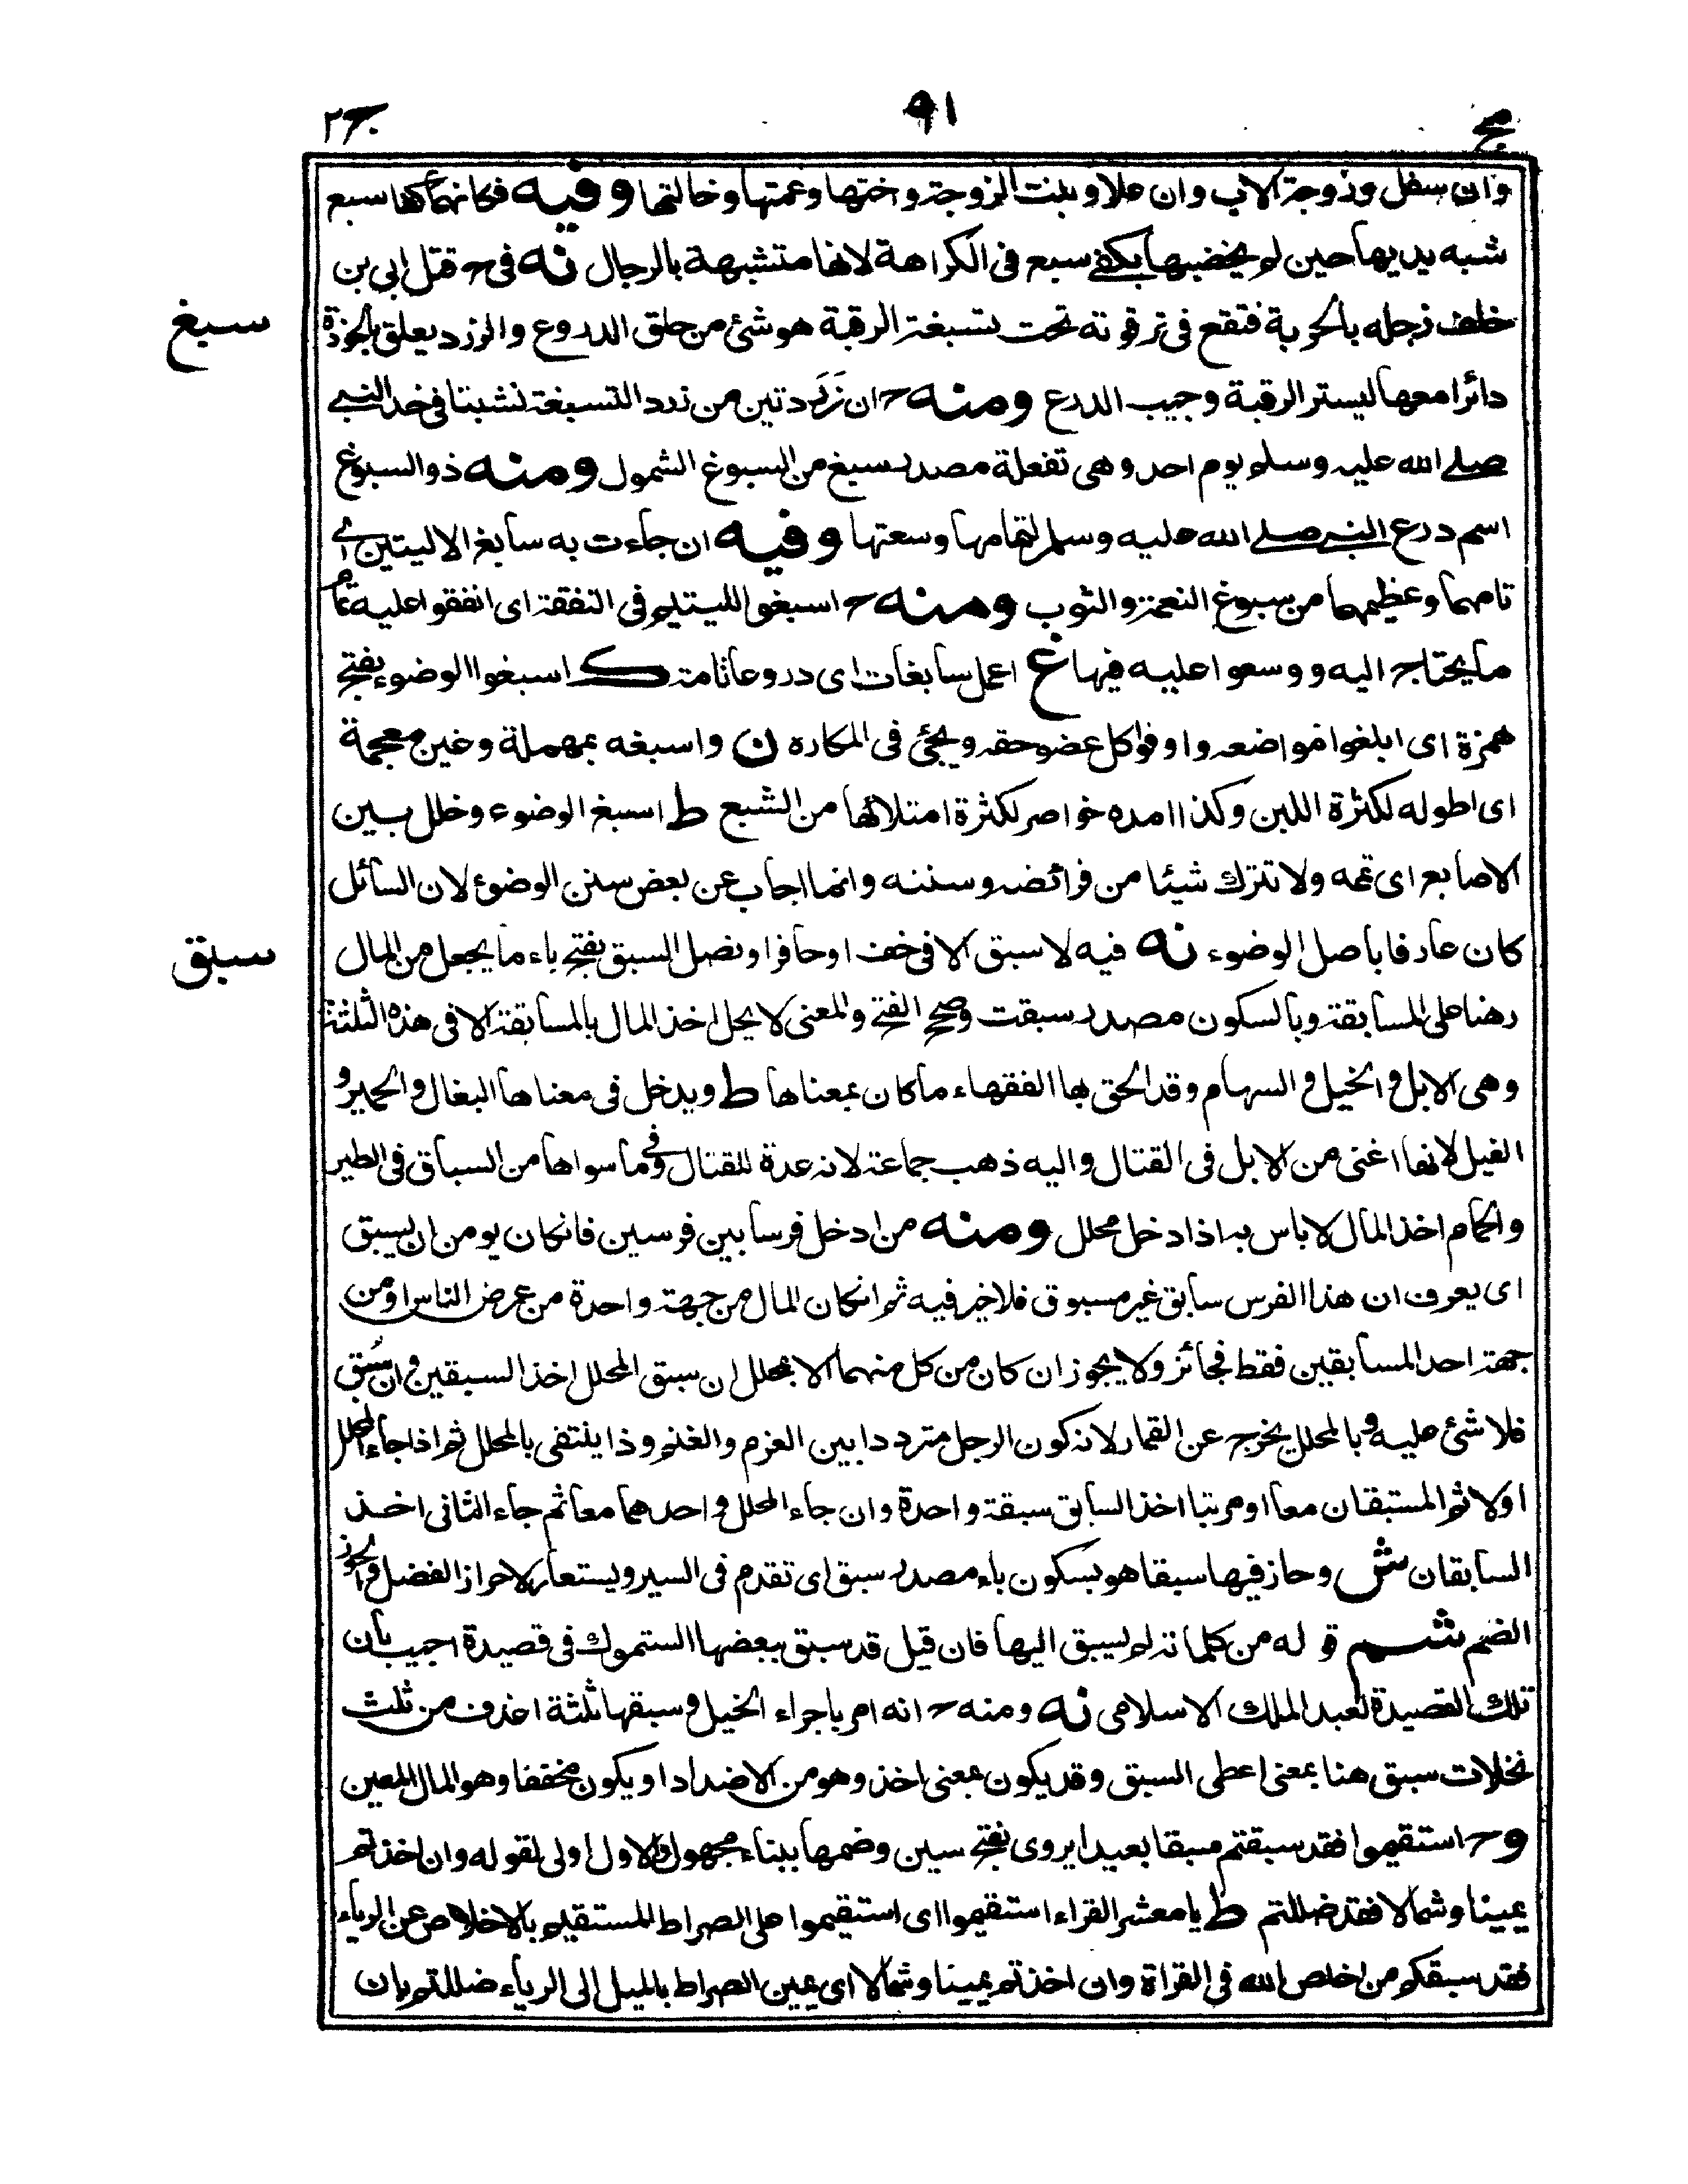 مج
٩١
وان سفل وزوجة الاب وان علا وبنت الزوجة واختها وعمتها وخالتها وفيه فكانما كفا سبع
شبه يديها حين لم يخضبها بكفے سبع فى الكراهة لانها متشبهة بالرجال نه فى ح قتل ابى بن
سبغ
خلف زجله بالحربة فتقع فى ترقوته تحت تسبغة الرقبة هو شئ من حلق الدروع والزرد يعلق بالخوذة
دائرا معها ليستر الرقبة وجيب الدرع ومنه ح ان زَرَدتين من زرد التسبغة نشبتا فى خد النبے
صلے الله عليه وسلم يوم احد وهى تفعلة مصدر سبغ من السبوغ الشمول ومنه ذو السبوغ
اسم درع النبے صلے الله عليه وسلم لتمامها وسعتها وفيه ان جاءت به سابغ الاليتين اے
تامهما وعظيمهما من سبوغ النعمة والثوب ومنه ح اسبغوا لليتيم فى النفقة اى انفقوا عليه تمام
ما يحتاج اليه ووسعوا عليه فيها غ اعمل سابغات اى دروعا تامة ك اسبغوا الوضوء بفتح
همزة اى ابلغوا مواضعه واوفوا كل عضو حقه ويجئ فى المكاره ن واسبغه بمهملة وغين معجمة
اى اطوله لكثرة اللبن وكذا امده خواصر لكثرة امتلائها من الشبع ط اسبغ الوضوء وخلل بين
الاصابع اى تمه ولا تترك شيئا من فرائضه وسننه وانما اجاب عن بعض سنن الوضوء لان السائل
سبق
كان عارفا باصل الوضوء نه فيه لا سبق الا فى خف او حافر او نصل السبق بفتح باء ما يجعل من المال
رهنا على المسابقة وبالسكون مصدر سبقت وصح الفتح والمعنى لا يحل اخذ المال بالمسابقة الا فى هذه الثلثة
وهى الابل والخيل والسهام وقد الحق بها الفقهاء ما كان بمعناها ط ويدخل فى معناها البغال والحمير و
الفيل لانها اغنى من الابل فى القتال واليه ذهب جماعة لانه عدة للقتال وفى ما سواها من السباق فى الطير
والحمام اخذ المال لا باس به اذا دخل محلل ومنه من ادخل فرسا بين فرسين فانكان يومن ان يسبق
اى يعرف ان هذا الفرس سابق غير مسبوق فلا خير فيه ثم انكان المال من جهة واحدة من عرض الناس او من
جهة احد المسابقين فقط فجائز ولا يجوز ان كان من كل منهما الا بمحلل ان سبق المحلل اخذ السبقين وان سُبق
فلا شئ عليه وبالمحلل يخرج عن القمار لانه كون الرجل مترددا بين الغرم والغنم وذا ينتفى بالمحلل ثم اذا جاء المحلل
اولا ثم المستبقان معا او مرتبا اخذ السابق سبقة واحدة وان جاء المحلل واحدهما معا ثم جاء الثانى اخذ
السابقان ش وحاز فيها سبقا هو بسكون باء مصدر سبق اى تقدم فى السير ويستعار لاحراز الفضل والحوز
الضم شم قوله من كلماته لم يسبق اليها فان قيل قد سبق ببعضها الستموك فى قصيدة اجيب بان
تلك القصيدة لعبد الملك الاسلامى نه ومنه ح انه امر باجراء الخيل وسبقها ثلثة اعذف من ثلث
نخلات سبق هنا بمعنى اعطى السبق وقد يكون بمعنى اخذ وهو من الاضداد او يكون مخففا وهو المال المعين
وح استقيموا فقد سبقتم سبقا بعيدا يروى بفتح سين وضمها ببناء مجهول والاول اولى لقوله وان اخذتم
يمينا وشمالا فقد ضللتم ط يا معشر القراء استقيموا اى استقيموا على الصراط المستقيم بالاخلاص عن الرياء
فقد سبقكم من اخلص الله فى القراة وان اخذتم يمينا وشمالا اى يمين الصراط بالميل الى الرياء ضللتم بان